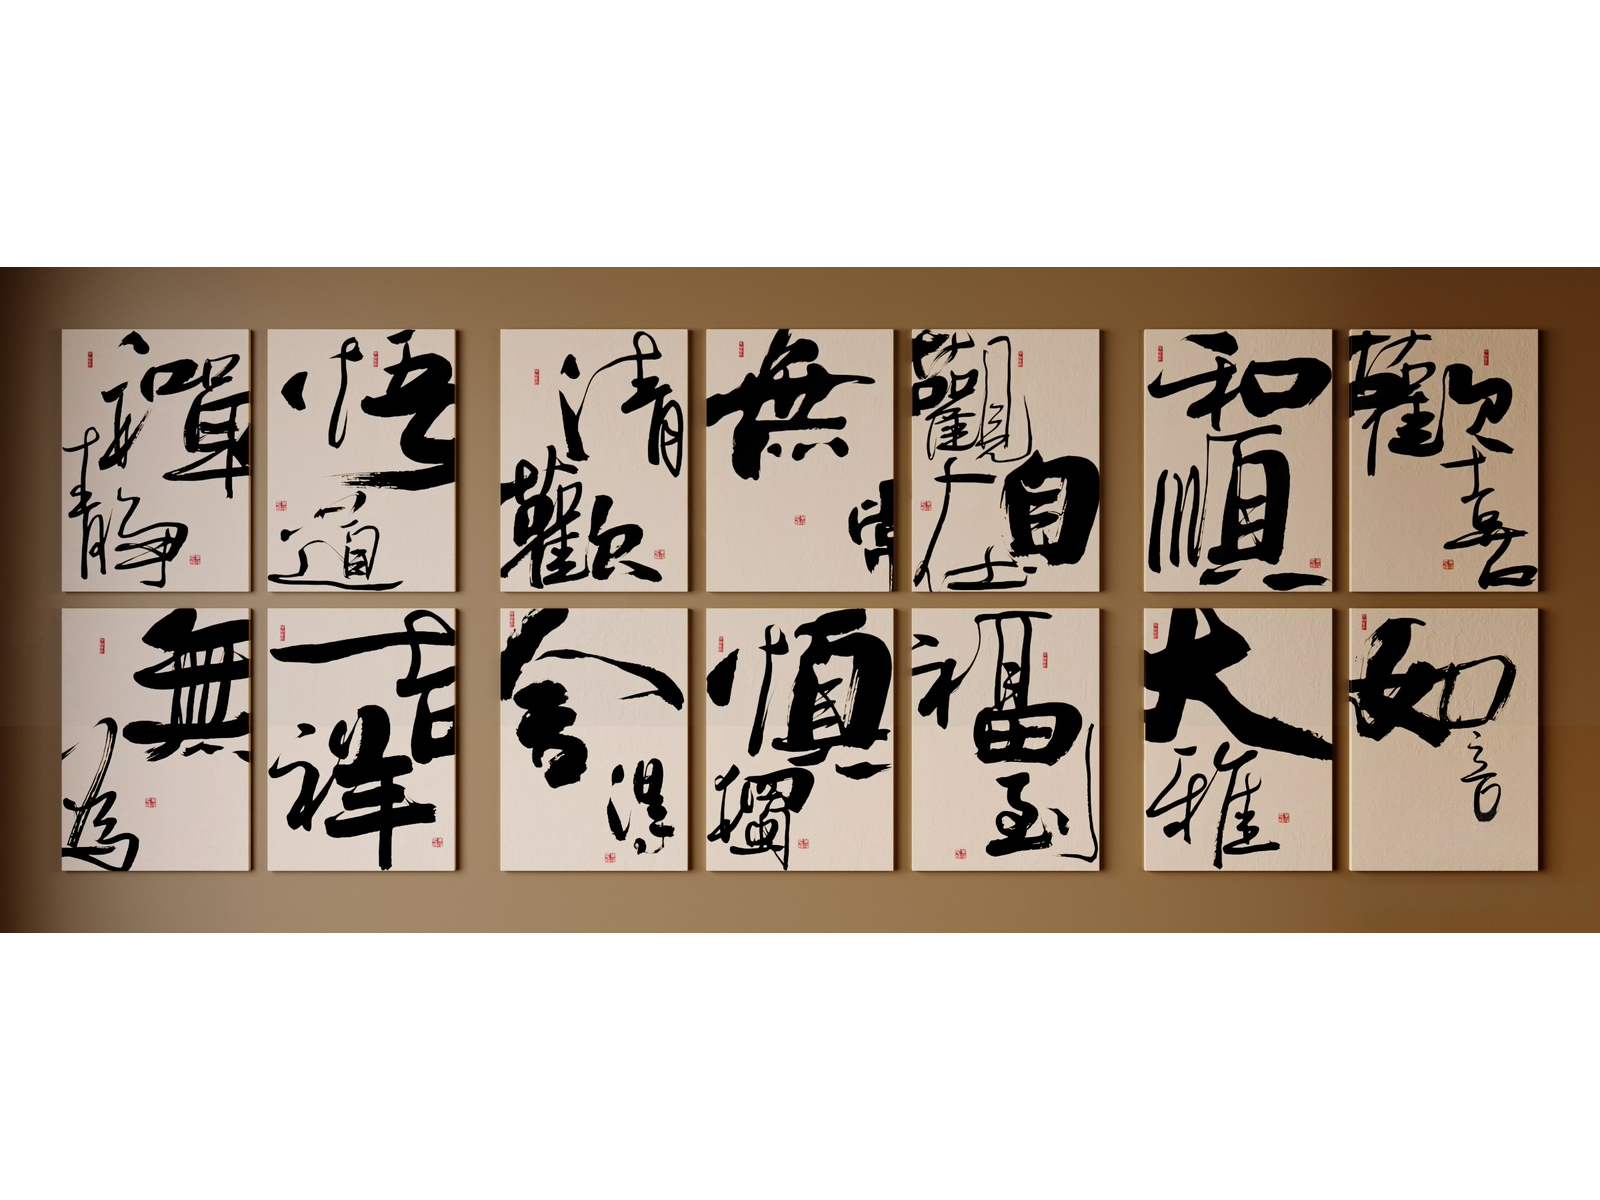 禪靜
悟道
清歡
無常
觀自在
和順
歡喜
無為
吉祥
舍得
慎獨
福到
大雅
如意